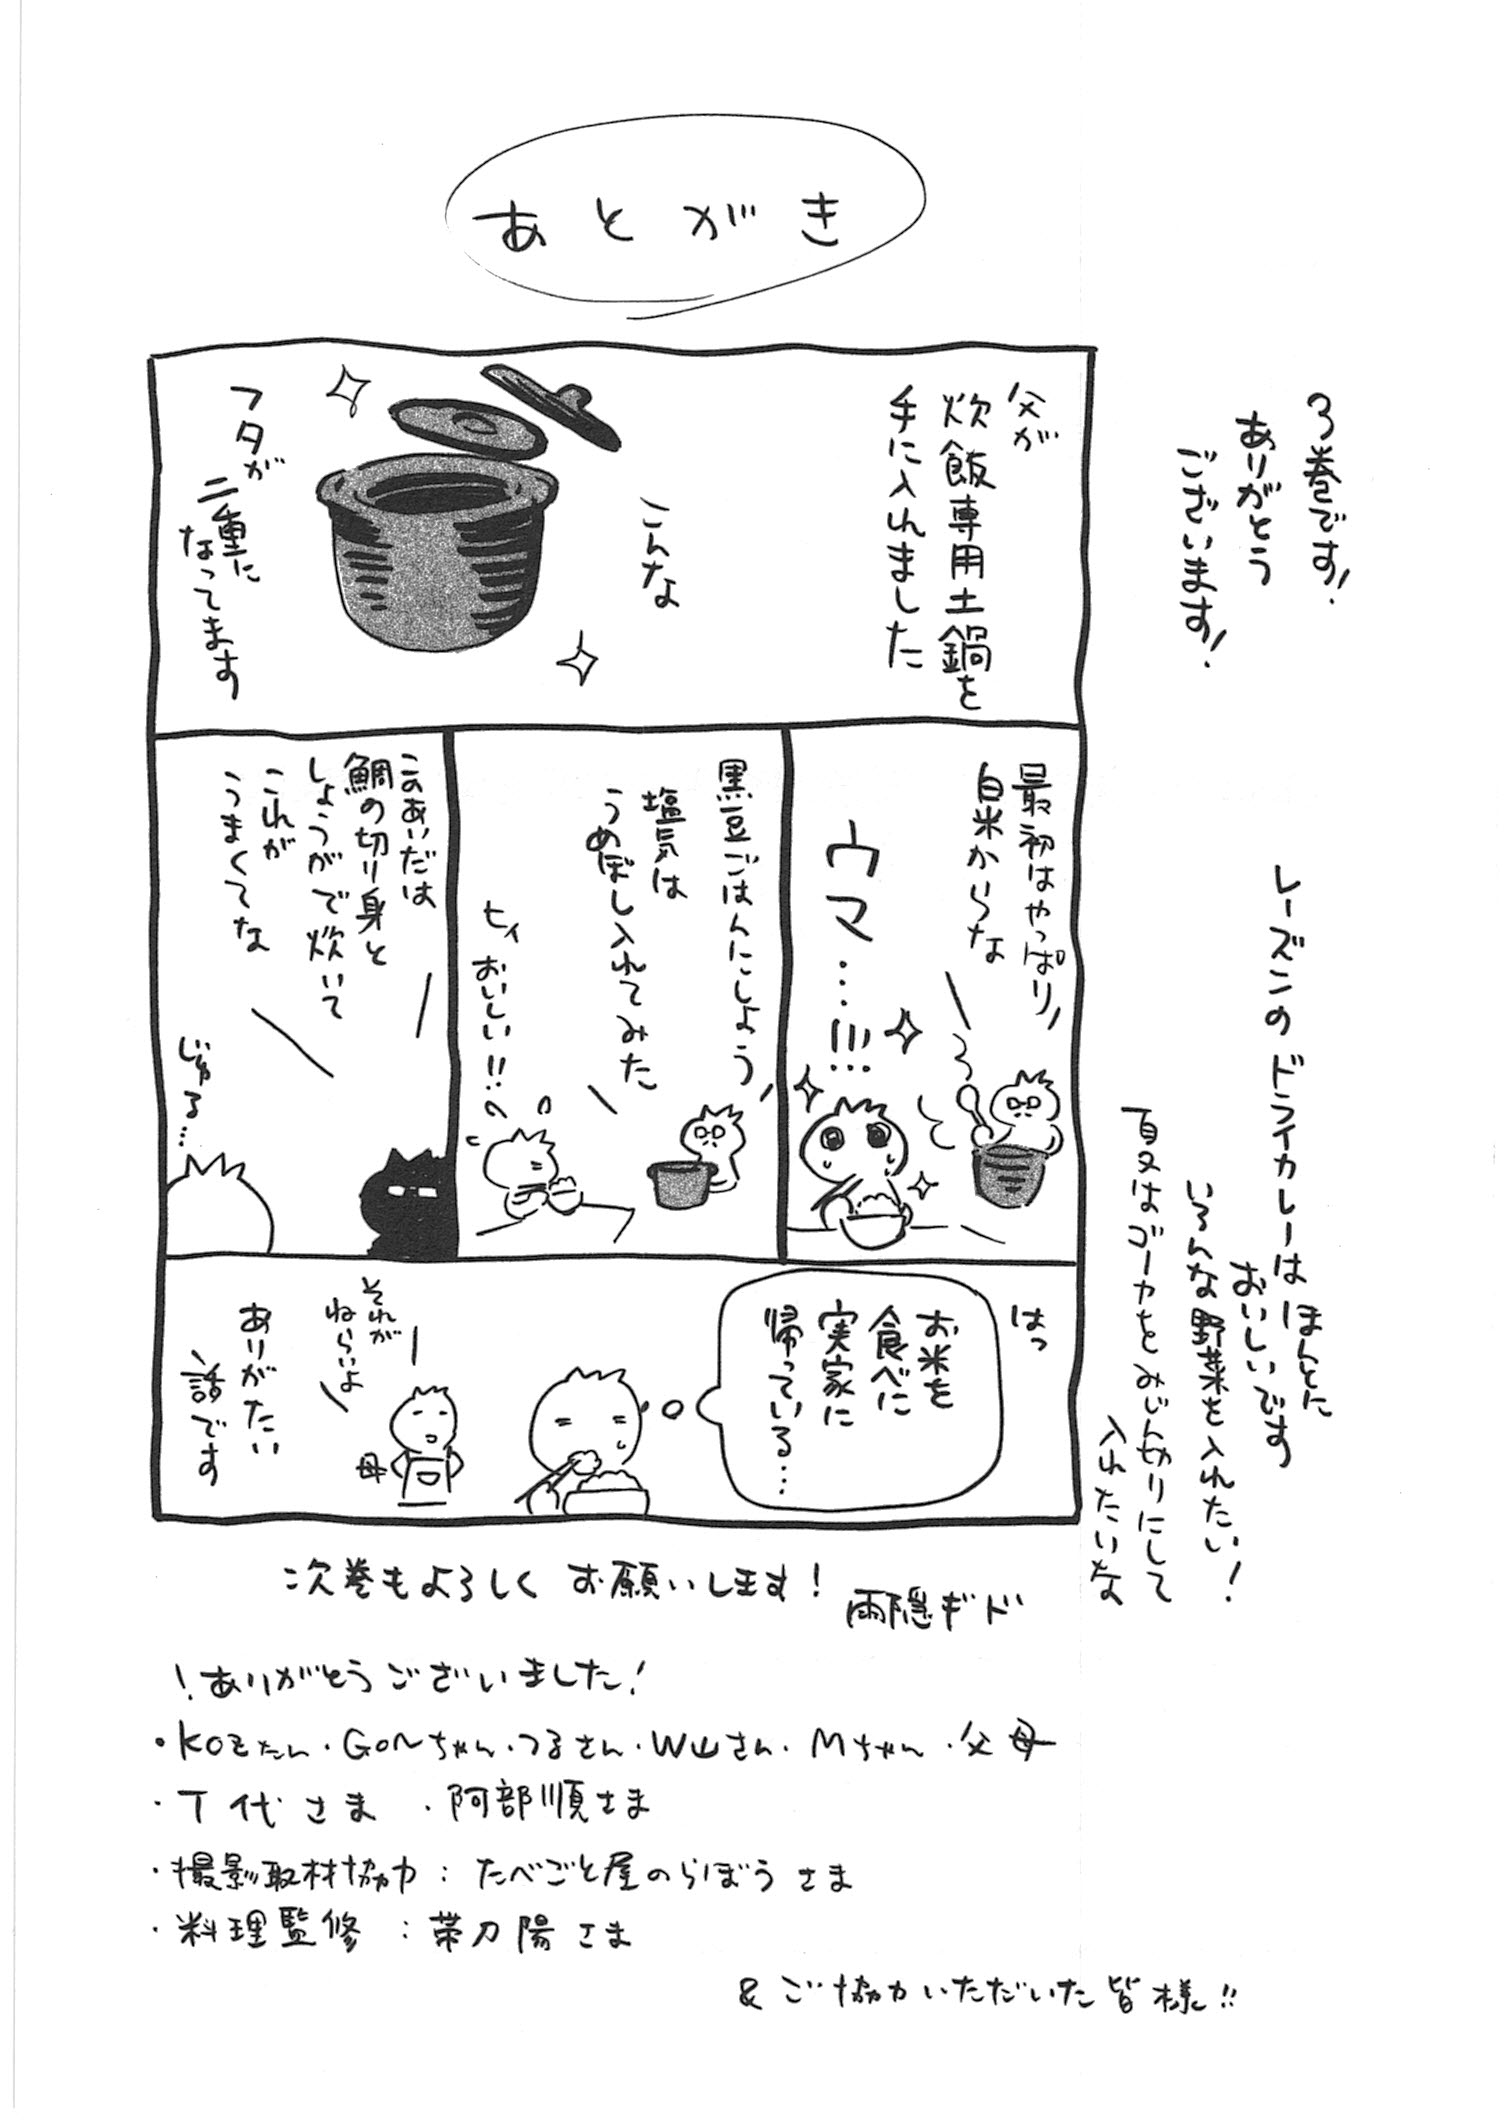 あとがき
3巻です!
ありがとう
ございます!
レーズンのドライカレーはほんとに
おいしいです
いろんな野菜を入れたい!
夏はゴーヤをみじん切りにして
入れたいな
父が
炊飯専用土鍋を
手に入れました
こんな
フタが
二重に
なってます
最初はやっぱり
白米からな
ウマ…!!!
黒豆ごはんにしよう
塩気は
うめぼし入れてみた
ヒィ
おいしい!!
このあいだは
鯛の切り身と
しょうがで炊いて
これが
うまくてな
じゅる…
はっ
お米を
食べに
実家に
帰っている…
それが
ねらいよ
母
ありがたい
話です
次巻もよろしくお願いします!
雨隠ギド
!ありがとうございました!
・KOZたん・Go〜ちゃん・つるさん・W山さん・Mちゃん・父母
・T代さま ・阿部順さま
・撮影取材協力:たべごと屋のらぼうさま
・料理監修:帯刀陽さま
&ご協力いただいた皆様!!